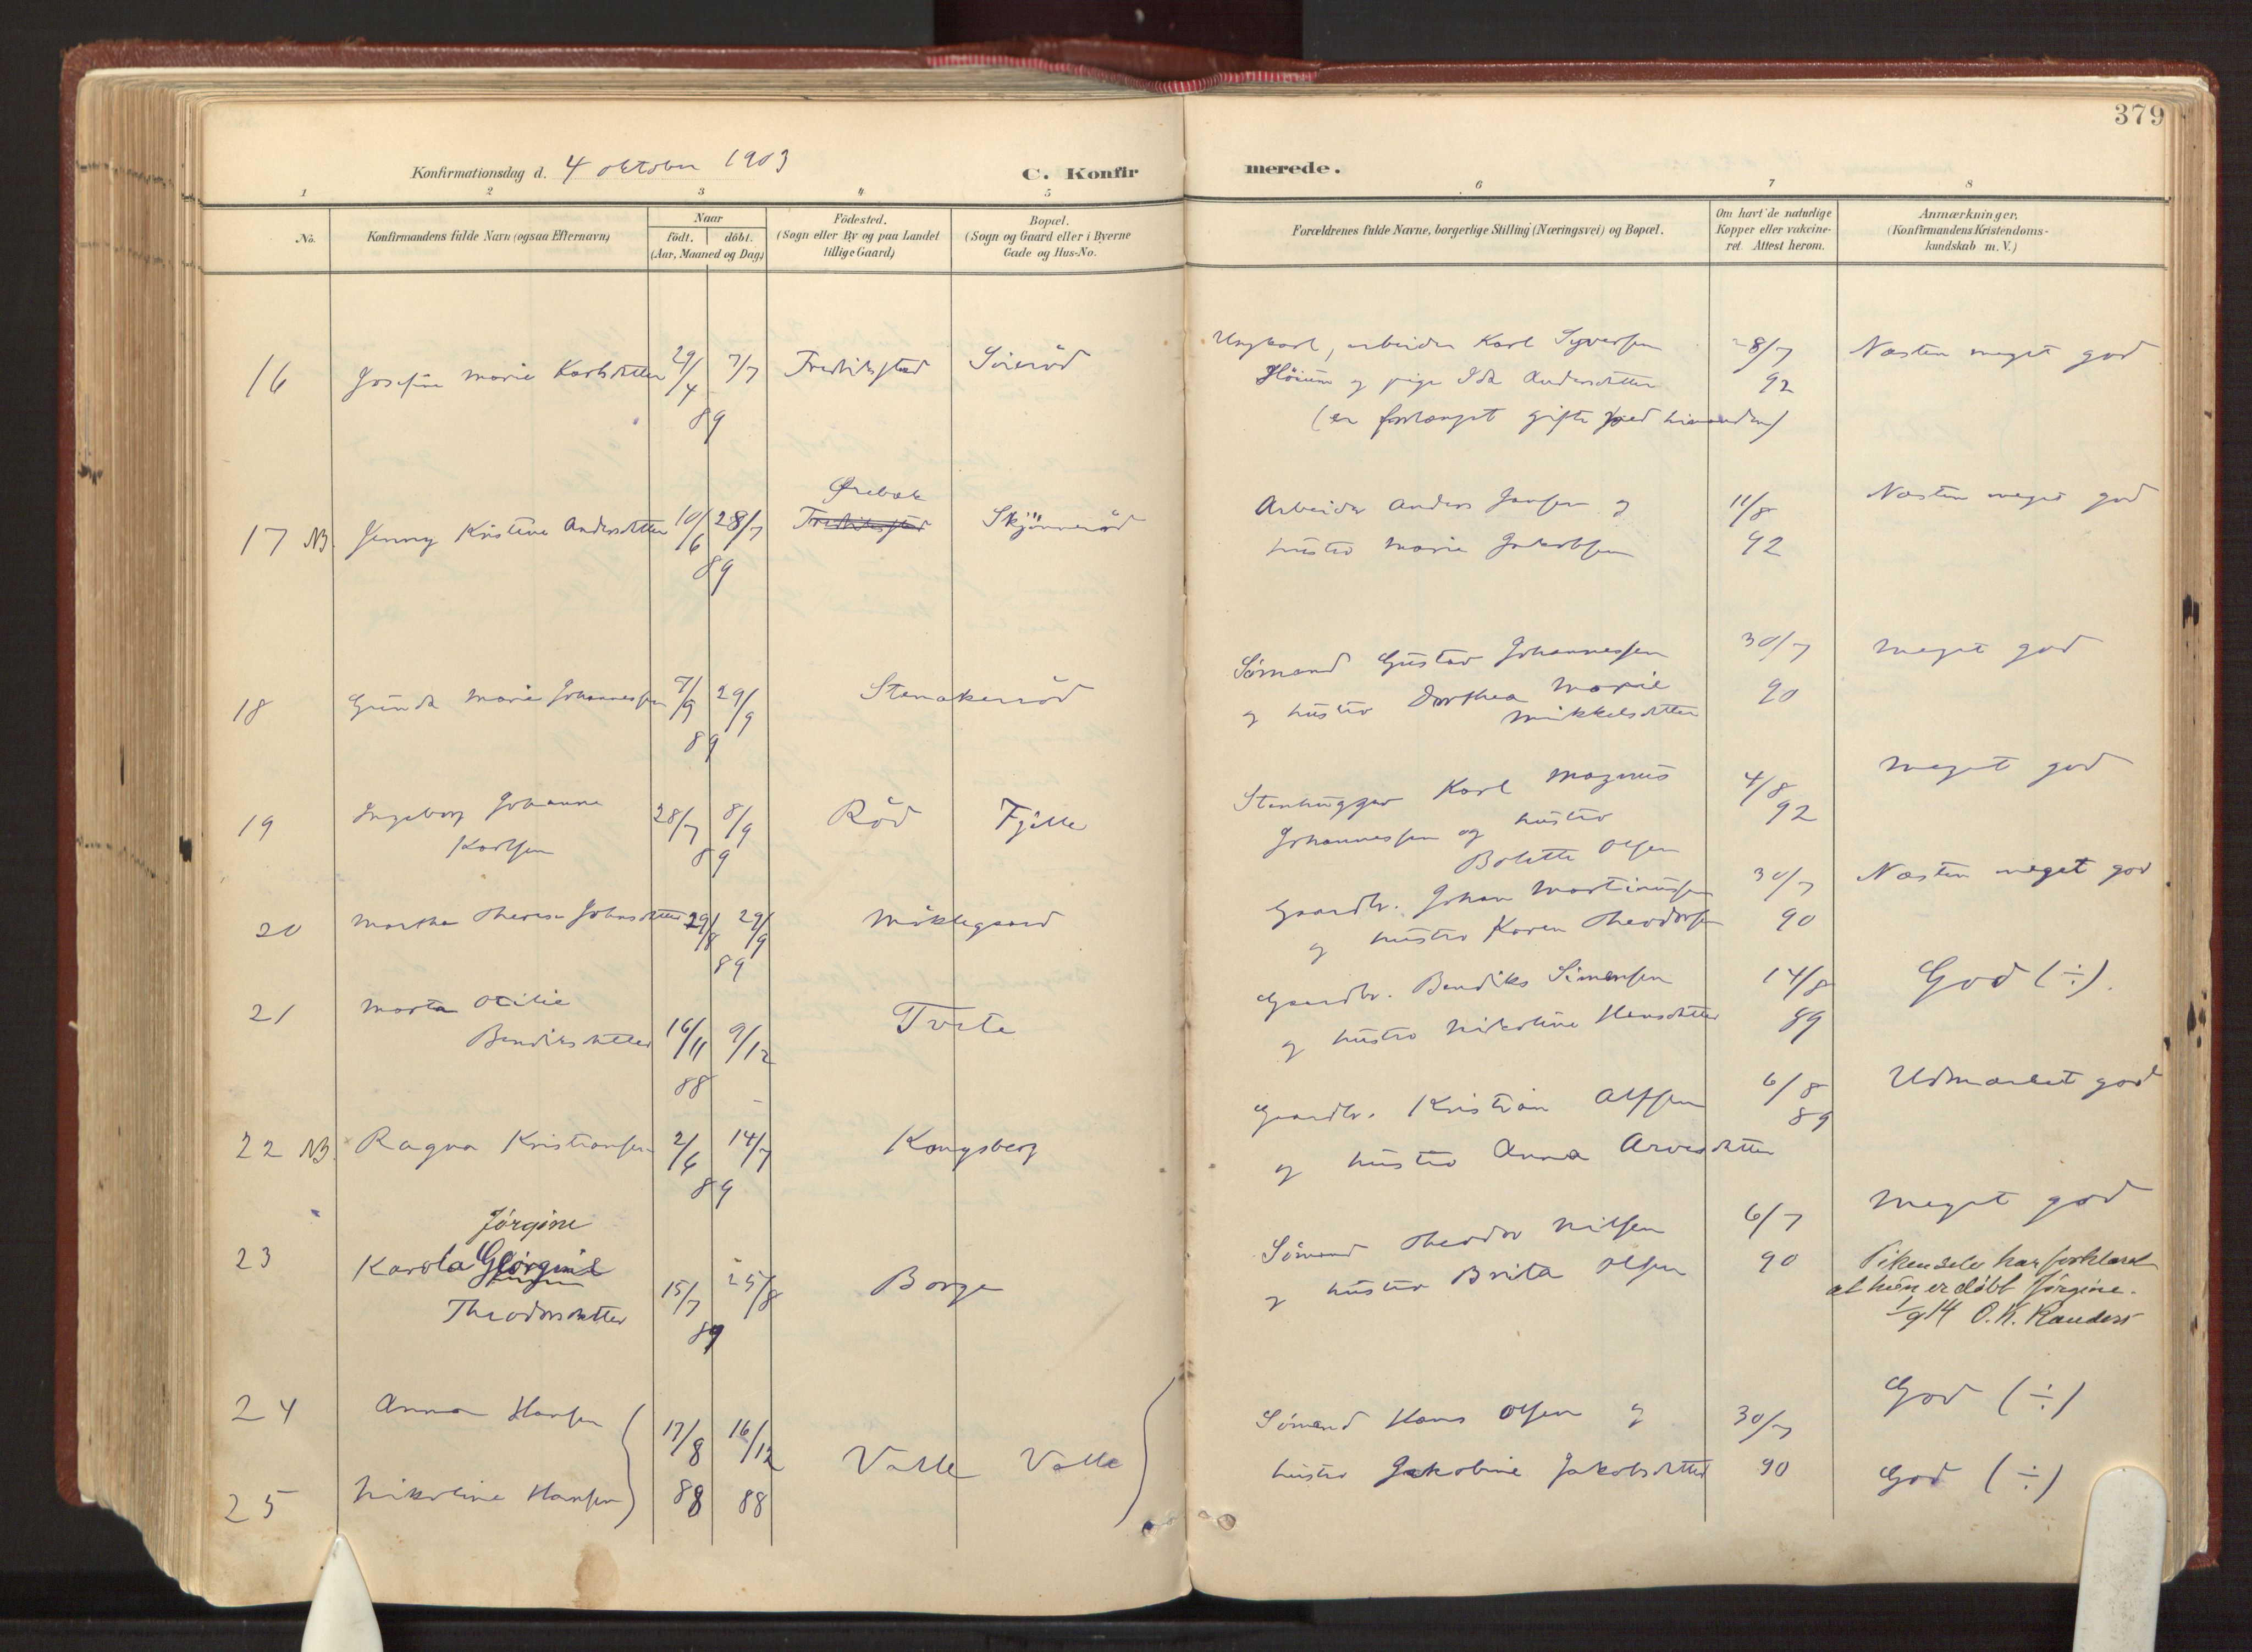 379
Konfirmationsdag d. 4 oktober 1903
C. Konfirmerede.
1 2 3 4 5 6 7 8
No.
Konfirmandens fulde Navn (ogsaa Efternavn)
Naar
födt. döbt.
(Aar, Maaned og Dag)
Födested.
(Sogn eller By og paa Landet
tillige Gaard)
Bopæl.
(Sogn og Gaard eller i Byerne
Gade og Hus-No.
Forældrenes fulde Navne, borgerlige Stilling (Næringsvei) og Bopæl.
Om havt de naturlige
Kopper eller vakcine-
ret. Attest herom.
Anmærkninger.
(Konfirmandens Kristendoms-
kundskab m.V.)
16 Josefine Marie Karlsdatter 29/4 7/7 Fredrikstad Ungkarl, arbeider Karl Syversen 8/7 Næsten meget god
og pige Ida Andersdatter 92
89
(er forlængst gifte med hinanden)
Ørebæk
17 NB. Jenny Kristine Andersdatter 10/6 28/7 Fredrikstad Skjönneröd Arbeider Anders Jansen og 11/8 Næsten meget god
89
hustro Marie Jakobsen 92
18 Gunda Marie Johannessen 7/9 29/9 Stenakerröd Sömand Gustav Johannessen 30/7 Meget god
89
og hustro Dorthea Marie 90
Mikkelsdatter
19 Ingeborg Johanne 28/7 8/9 Röd Fjille Stenhugger Karl Magnus 4/8 Meget god
Karlsen 89
Johannessen og hustro 92
Bolette Olsen
20 Martha Therese Johnsdatter 29/8 29/9 Möklegaard Gaardbr. Johan Martinussen 30/7 Næsten meget god
89
og hustro Karen Theodorsen 90
21 Marta Otilie Gaardbr. Bendiks Simensen 14/8 God (÷).
Bendiksdatter 16/11 9/12 Tofte og hustro Nikoline Hansdatter 89
88
22 NB. Ragna Kristiansen 2/6 14/7 Kongsberg Gaardbr. Kristian Olssen 6/8 Udmærket god
89
89
og hustro Anna Arvesdatter
Jörgine
23 Karola Georgine Sömand Theodor Nilsen 6/7 Meget god
Theodorsdatter 15/7 25/8 Borge og hustro Brita Olsen 90
89
Piken selv har forklaret
at hun er döbt Jörgine.
1/9 14 O. K. Randers
24 Anna Hansen 17/8 16/12 Valle Valle Sömand Hans Olsen og 30/7 God (÷)
25 Nikoline Hansen 88 88 hustro Jakobine Jakobsdatter 90 God (÷)